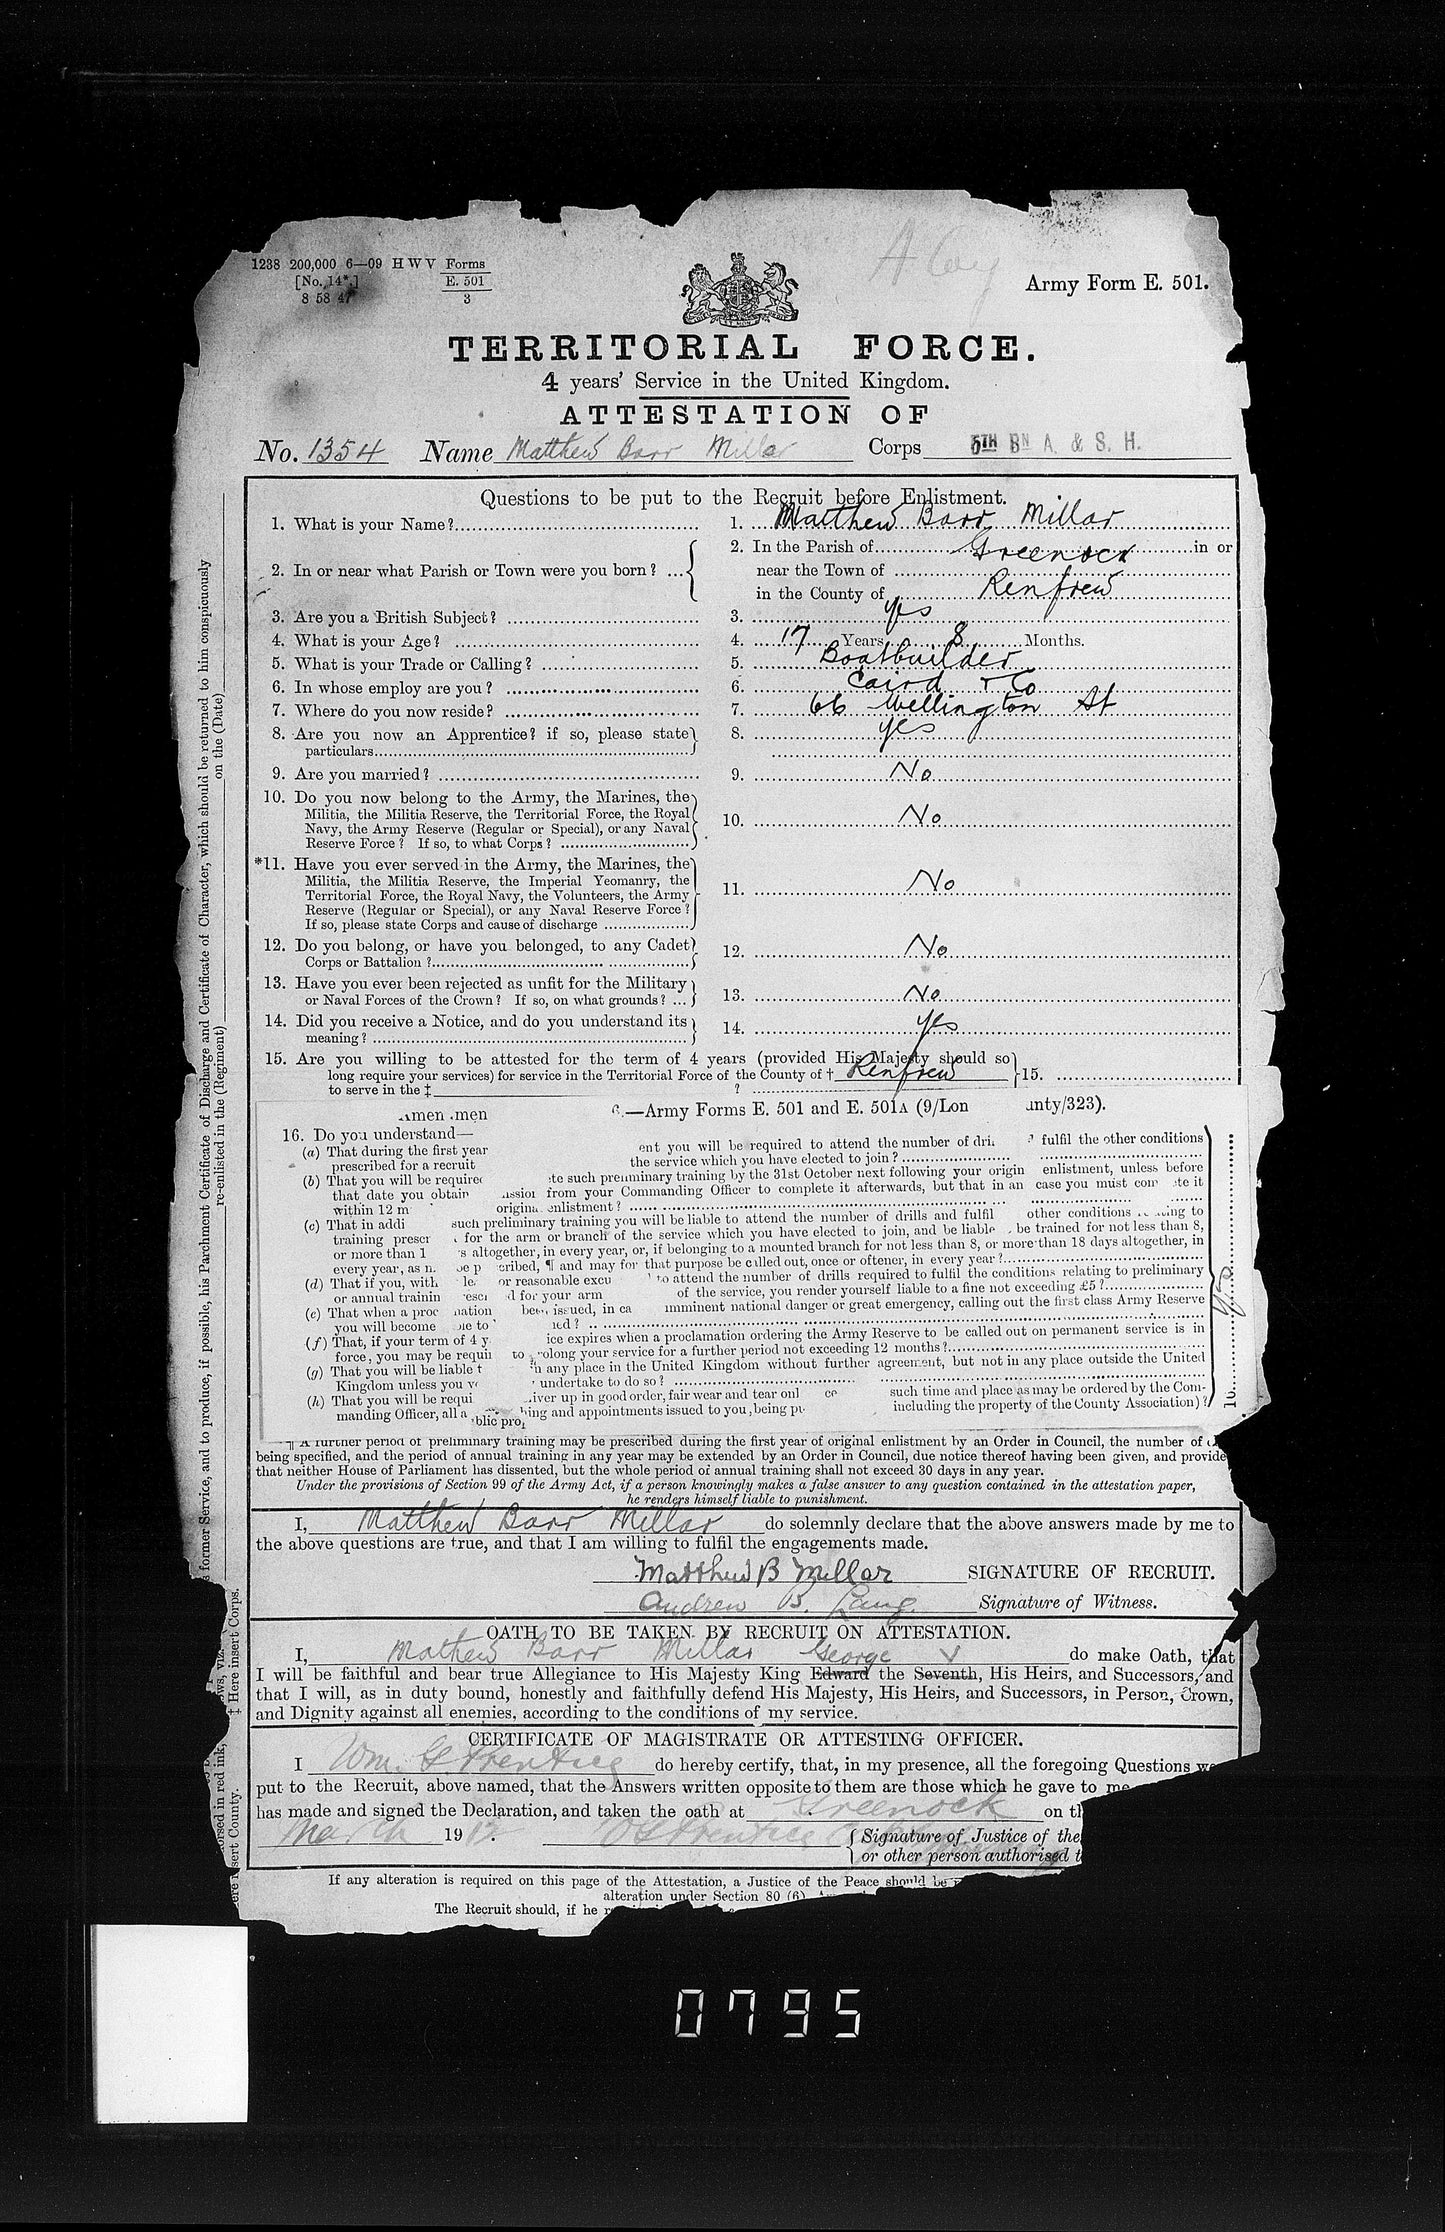 1238 200,000 6—09 H W V Forms
[No. 14*.] E. 501
8 58 47 3
A Coy
Army Form E. 501.
TERRITORIAL FORCE.
4 years' Service in the United Kingdom.
ATTESTATION OF
No. 1354 Name Matthew Barr Millar Corps 5TH BN A. & S. H.
Questions to be put to the Recruit before Enlistment.
1. What is your Name? 1. Matthew Barr Millar
2. In or near what Parish or Town were you born? 2. In the Parish of Greenock in or
near the Town of
in the County of Renfrew
3. Are you a British Subject? 3. Yes
4. What is your Age? 4. 17 Years 8 Months.
5. What is your Trade or Calling? 5. Boatbuilder
6. In whose employ are you? 6. Caird & Co
7. Where do you now reside? 7. 66 Wellington St
8. Are you now an Apprentice? if so, please state 8. yes
particulars
9. Are you married? 9. No
10. Do you now belong to the Army, the Marines, the
Militia, the Militia Reserve, the Territorial Force, the Royal
Navy, the Army Reserve (Regular or Special), or any Naval
Reserve Force? If so, to what Corps? 10. No
*11. Have you ever served in the Army, the Marines, the
Militia, the Militia Reserve, the Imperial Yeomanry, the
Territorial Force, the Royal Navy, the Volunteers, the Army
Reserve (Regular or Special), or any Naval Reserve Force?
If so, please state Corps and cause of discharge 11. No
12. Do you belong, or have you belonged, to any Cadet
Corps or Battalion? 12. No
13. Have you ever been rejected as unfit for the Military
or Naval Forces of the Crown? If so, on what grounds? 13. No
14. Did you receive a Notice, and do you understand its
meaning? 14. Yes
15. Are you willing to be attested for the term of 4 years (provided His Majesty should so
long require your services) for service in the Territorial Force of the County of † Renfrew 15.
to serve in the ‡ ?
—Army Forms E. 501 and E. 501A (9/Lon unty/323).
16. Do you understand—
(a) That during the first year ent you will be required to attend the number of dri fulfil the other conditions
prescribed for a recruit the service which you have elected to join?
(b) That you will be required te such preliminary training by the 31st October next following your origin enlistment, unless before
that date you obtain ission from your Commanding Officer to complete it afterwards, but that in an case you must com te it
within 12 m origina enlistment?
(c) That in addi such preliminary training you will be liable to attend the number of drills and fulfil other conditions ing to
training prescr for the arm or branch of the service which you have elected to join, and be liable be trained for not less than 8,
or more than 1 s altogether, in every year, or, if belonging to a mounted branch for not less than 8, or more than 18 days altogether, in
every year, as n be p cribed, ¶ and may for that purpose be called out, once or oftener, in every year?
(d) That if you, with le or reasonable excu to attend the number of drills required to fulfil the conditions relating to preliminary
or annual trainin resci d for your arm of the service, you render yourself liable to a fine not exceeding £5?
(e) That when a proc nation been issued, in ca imminent national danger or great emergency, calling out the first class Army Reserve
you will become ole to ied?
(f) That, if your term of 4 y ice expires when a proclamation ordering the Army Reserve to be called out on permanent service is in
force, you may be requi to rolong your service for a further period not exceeding 12 months?
(g) That you will be liable t in any place in the United Kingdom without further agreement, but not in any place outside the United
Kingdom unless you v undertake to do so?
(h) That you will be requi liver up in good order, fair wear and tear onl ce such time and place as may be ordered by the Com-
manding Officer, all a blic prop hing and appointments issued to you, being pu including the property of the County Association)?
16. Yes
¶ A further period of preliminary training may be prescribed during the first year of original enlistment by an Order in Council, the number of
being specified, and the period of annual training in any year may be extended by an Order in Council, due notice thereof having been given, and provide
that neither House of Parliament has dissented, but the whole period of annual training shall not exceed 30 days in any year.
Under the provisions of Section 99 of the Army Act, if a person knowingly makes a false answer to any question contained in the attestation paper,
he renders himself liable to punishment.
I, Matthew Barr Millar do solemnly declare that the above answers made by me to
the above questions are true, and that I am willing to fulfil the engagements made.
Matthew B Millar SIGNATURE OF RECRUIT.
Andrew B. Laing. Signature of Witness.
OATH TO BE TAKEN BY RECRUIT ON ATTESTATION.
I, Mathew Barr Millar George V do make Oath, that
I will be faithful and bear true Allegiance to His Majesty King Edward the Seventh, His Heirs, and Successors, and
that I will, as in duty bound, honestly and faithfully defend His Majesty, His Heirs, and Successors, in Person, Crown,
and Dignity against all enemies, according to the conditions of my service.
CERTIFICATE OF MAGISTRATE OR ATTESTING OFFICER.
I Wm. G. Prentice do hereby certify, that, in my presence, all the foregoing Questions we
put to the Recruit, above named, that the Answers written opposite to them are those which he gave to me
has made and signed the Declaration, and taken the oath at Greenock on th
March 1912. W G Prentice Signature of Justice of the
or other person authorised t
If any alteration is required on this page of the Attestation, a Justice of the Peace should be
alteration under Section 80 (6)
The Recruit should, if he r
former Service, and to produce, if possible, his Parchment Certificate of Discharge and Certificate of Character, which should be returned to him conspicuously
re-enlisted in the (Regiment) on the (Date)
‡ Here insert Corps.
orsed in red ink,
sert County.
0795